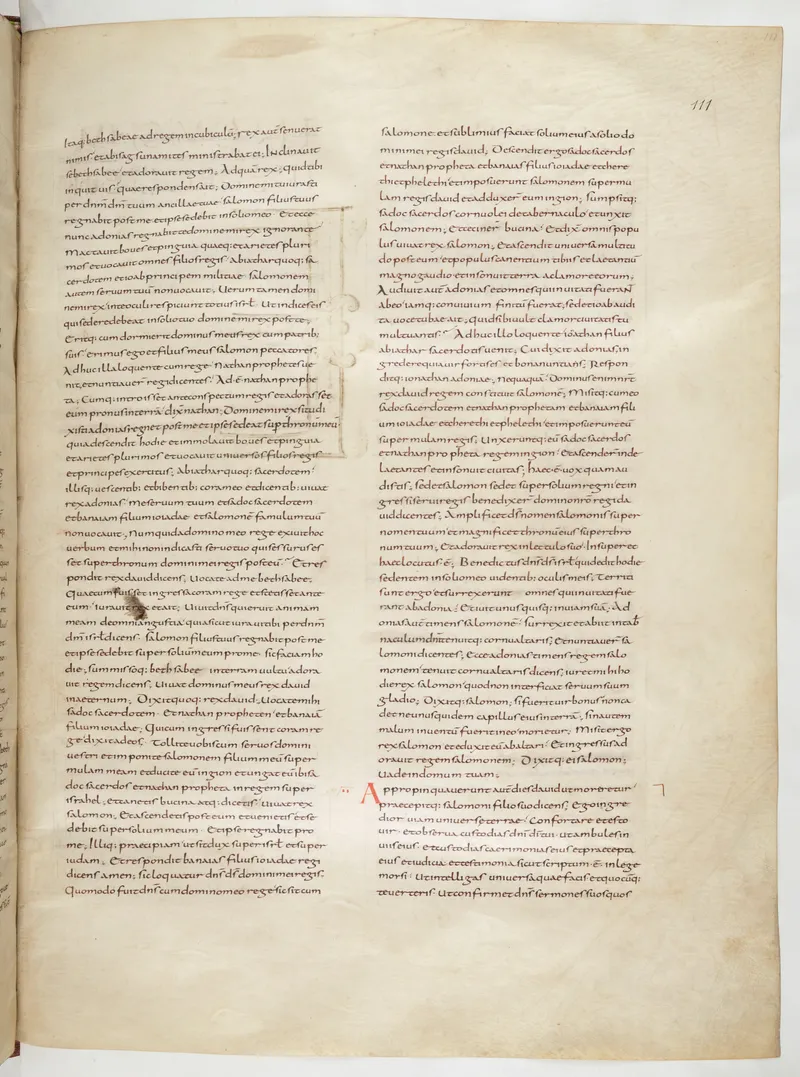 111
Itaq: bethsabeae ad regem in cubiculū; rex aut̄ senuerat
nimis et abisag sunamites ministrabat ei; Inclinauit
se bethsabee et adorauit regem; Ad quā rex; quid tibi
inquit uis; quae respondens ait; Domine mi tu iurasti
per dnm̄ dm̄ tuum ancillae tuae salomon filius tuus
regnabit post me et ipse sedebit in solio meo Et ecce
nunc adonias regnabit te domine mi rex ignorante
Mactauit boues et pinguia quaeq: et arietes pluri
mos et uocauit omnes filios regis Abiathar quoq: sa
cerdotem et ioab principem militiae salomonem
autem seruum tuū non uocauit; Uerum tamen domi
ne mi rex in te oculi respiciunt totius isrl̄ Ut indices eis
qui sedere debeat in solio tuo domine mi rex post te;
Eritq: cum dormierit dominus meus rex cum patrib;
suis erimus ego et filius meus salomon peccatores;
Adhuc illa loquente cum rege nathan prophetes ue
nit et nuntiauer̄ regi dicentes; Adē nathan prophe
ta; Cumq: introisset ante conspectum regis et adorasset
eum pronus in terrā dix̄ nathan; Domine mi rex tu di
xisti adonias regnet post me et ipse sedeat sup thronum meū
quia descendit hodie et immolauit boues et pinguia
et arietes plurimos et uocauit uniuersos filios regis
et principes exercitus; Abiathar quoq: sacerdotem
illisq: uescentib; et bibentib; coram eo et dicentib; uiuat
rex adonias Me seruum tuum et sadoc sacerdotem
et banaiam filium ioiadae et salomonē famulum tuū
non uocauit; Numquid a domino meo rege exiuit hoc
uerbum et mihi non indicasti seruo tuo qui sessurus es
set super thronum domini mei regis post eū Et res
pondit rex dauid dicens; Uocate ad me bethsabee;
Quae cum fuisset ingressa coram rege et stetisset ante
eum iurauit rex et ait; Uiuit dns̄ qui eruit animam
meam de omni angustia quia sicut iuraui tibi per dnm̄
dm̄ isrl̄ dicens salomon filius tuus regnabit post me
et ipse sedebit super solium meum pro me sic faciam ho
die; summissoq: bethsabee in terram uultu adora
uit regem dicens; Uiuat dominus meus rex dauid
in aeternum; Dixit quoq: rex dauid; Uocate mihi
sadoc sacerdotem Et nathan propheten et banaiā
filium ioiadae; Qui cum ingressi fuissent coram re
ge dixit ad eos Tollite uobiscum seruos domini
uestri et imponite salomonem filium meū super
mulam meam et ducite eū in gion et ungat eū ibi sa
doc sacerdos et nathan propheta in regem super
israhel; et canetis bucina atq: dicetis uiuat rex
salomon; Et ascendetis post eum et ueniet et se
debit super solium meum Et ipse regnabit pro
me; Illiq: praecipiam ut sit dux super isrl̄ et super
iudam; Et respondit banaias filius ioiadae regi
dicens amen; sic loquatur dns̄ ds̄ domini mei regis
Quomodo fuit dns̄ cum domino meo rege sic sit cum
salomone et sublimius faciat solium eius a solio do
mini mei regis dauid; Descendit ergo sadoc sacerdos
et nathan propheta et banaias filius ioiadae et chere
thi et phelethi et imposuerunt salomonem super mu
lam regis dauid et adduxer̄ eum in gion; sumpsitq:
sadoc sacerdos cornu olei de tabernaculo et unxit
salomonem; Et ceciner̄ bucina et dix̄ omnis popu
lus uiuat rex salomon; Et ascendit uniuersa multitu
do post eum et populus canentium tibiis et laetantiū
magno gaudio et insonuit terra a clamore eorum;
Audiuit aut̄ adonias et omnes qui inuitati fuerant
ab eo iamq: conuiuium finitū fuerat; sed et ioab audi
ta uoce tubae ait; quid sibi uult clamor ciuitatis tu
multuantis Adhuc illo loquente ioathan filius
abiathar sacerdotis uenit; Cui dixit adonias; in
gredere quia uir fortis es et bona nuntians; Respon
ditq: ionathan adoniae; Nequaquā Dominus enim nr̄
rex dauid regem constituit salomonē; Misitq: cum eo
sadoc sacerdotem et nathan prophetam et banaiam fili
um ioiadae et cherethi et phelethi et imposuerunt eū
super mulam regis; Unxeruntq: eū sadoc sacerdos
et nathan propheta regem in gion Et ascender̄ inde
laetantes et insonuit ciuitas; haec ē uox quam au
distis; sed et salomon sedet super solium regni et in
gressi serui regis benedixer̄ domino nr̄o regi da
uid dicentes; Amplificet ds̄ nomen salomonis super
nomen tuum et magnificet thronū eius super thro
num tuum; Et adorauit rex in lectulo suo Insuper et
haec locutus ē; Benedictus dns̄ ds̄ isrl̄ qui dedit hodie
sedentem in solio meo uidentib; oculis meis; Territi
sunt ergo et surrexerunt omnes qui inuitati fue
rant ab adonia Et iuit unusquisq: in uiam suā; Ad
onias aut̄ timens salomonē surrexit et abiit in tab̄
naculum dn̄i tenuitq: cornu altaris; Et nuntiauer̄ sa
lomoni dicentes; Ecce adonias timens regem salo
monem tenuit cornu altaris dicens; iuret mihi ho
die rex salomon quod non interficiat seruum suum
gladio; Dixitq: salomon; si fuerit uir bonus non ca
det ne unus quidem capillus eius in terrā; sin autem
malum inuentū fuerit in eo morietur; Misit ergo
rex salomon et eduxit eū ab altari Et ingressus ad
orauit regem salomonem; Dixitq: ei salomon;
Uade in domum tuam;
Appropinquauerunt aut̄ dies dauid ut moreretur
praecepitq: salomoni filio suo dicens; Ego ingre
dior uiam uniuersae terrae Confortare et esto
uir et obserua custodias dn̄i dī tui ut ambules in
uiis eius et custodias caerimonias eius et praecepta
eius et iudicia et testimonia sicut scriptum ē in lege
morsi Ut intelligas uniuersa quae facis et quocūq:
te uerteris Ut confirmet dns̄ sermones suos quos